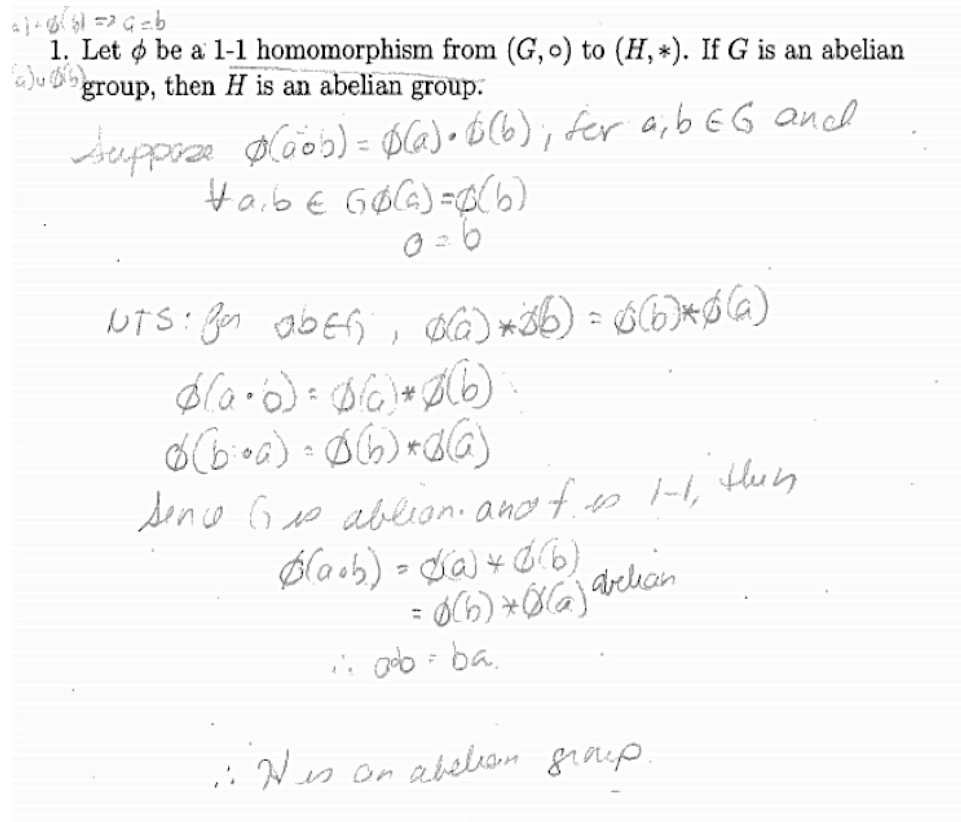 a) = ϕ(b) => a=b
1. Let ϕ be a 1-1 homomorphism from (G, ∘) to (H, *). If G is an abelian
group, then H is an abelian group.
Suppose ϕ(a∘b) = ϕ(a)·ϕ(b), for a,b ∈ G and
∀a,b ∈ G ϕ(a)=ϕ(b)
a = b
NTS: for ab∈G, ϕ(a)*ϕ(b) = ϕ(b)*ϕ(a)
ϕ(a∘b) = ϕ(a)*ϕ(b)
ϕ(b∘a) = ϕ(b)*ϕ(a)
Since G is ablian and f is 1-1, then
ϕ(a∘b) = ϕ(a)*ϕ(b)
= ϕ(b)*ϕ(a) abelian
∴ ab = ba.
∴ H is an abelian group.